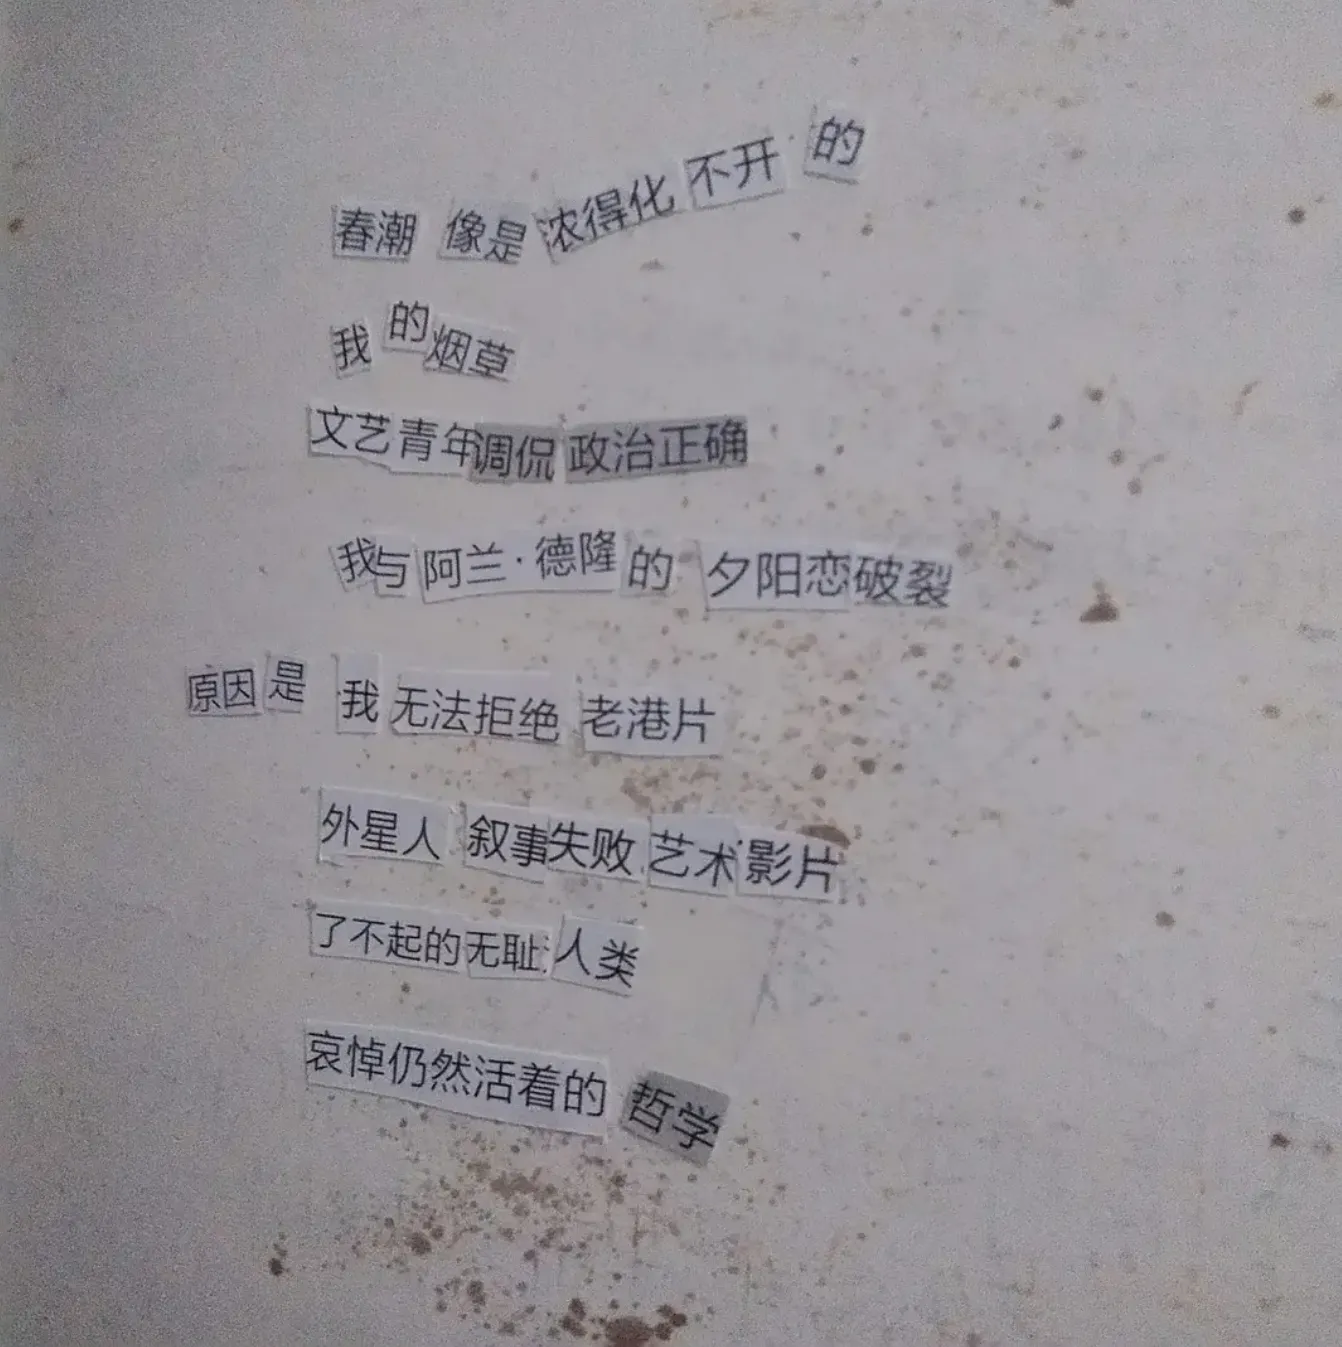 春潮 像是浓得化不开的
我的烟草
文艺青年调侃政治正确
我与阿兰·德隆的 夕阳恋破裂
原因是 我无法拒绝 老港片
外星人 叙事失败 艺术影片
了不起的无耻人类
哀悼仍然活着的 哲学